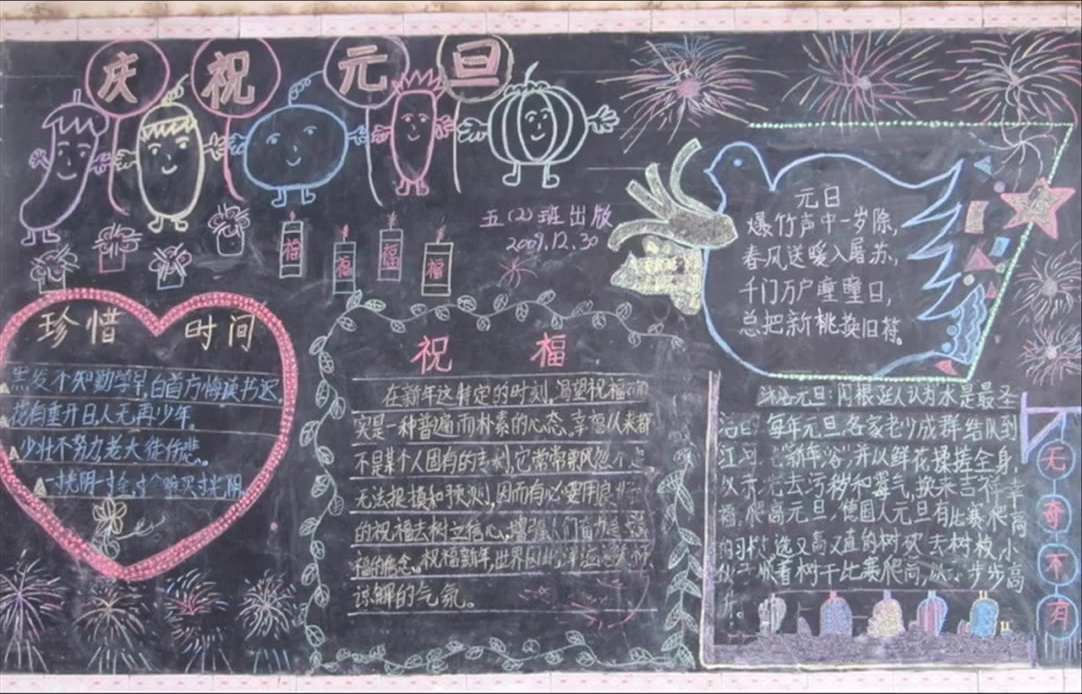 庆祝元旦
五(2)班出版
2009.12.30
福
福
福
福
珍惜 时间
黑发不知勤学早,白首方悔读书迟。
花有重开日人无再少年。
少壮不努力老大徒伤悲。
一寸光阴一寸金,寸金难买寸光阴
祝 福
在新年这特定的时刻,渴望祝福
实是一种普遍而朴素的心态。幸福从来都
不是某个人固有的专利,它常常乘风
无法捉摸和预测,因而有必要用良
的祝福去树立信心,增强人们奋力
福的信念。祝福新年,世界因此洋溢
谅解的气氛。
元日
爆竹声中一岁除,
春风送暖入屠苏,
千门万户曈曈日,
总把新桃换旧符。
沐浴元旦:阿根廷人认为水是最圣
洁的,每年元旦,各家老少成群结队到
江河 新年浴,并从鲜花揉搓全身,
以示洗去污秽和霉气,换来吉祥幸
福。爬高元旦,德国人元旦有比赛爬高
的习惯,选又高又直的树砍去树枝,小
伙子顺着树干比赛爬高,以示步步高
升。
无
奇
不
有